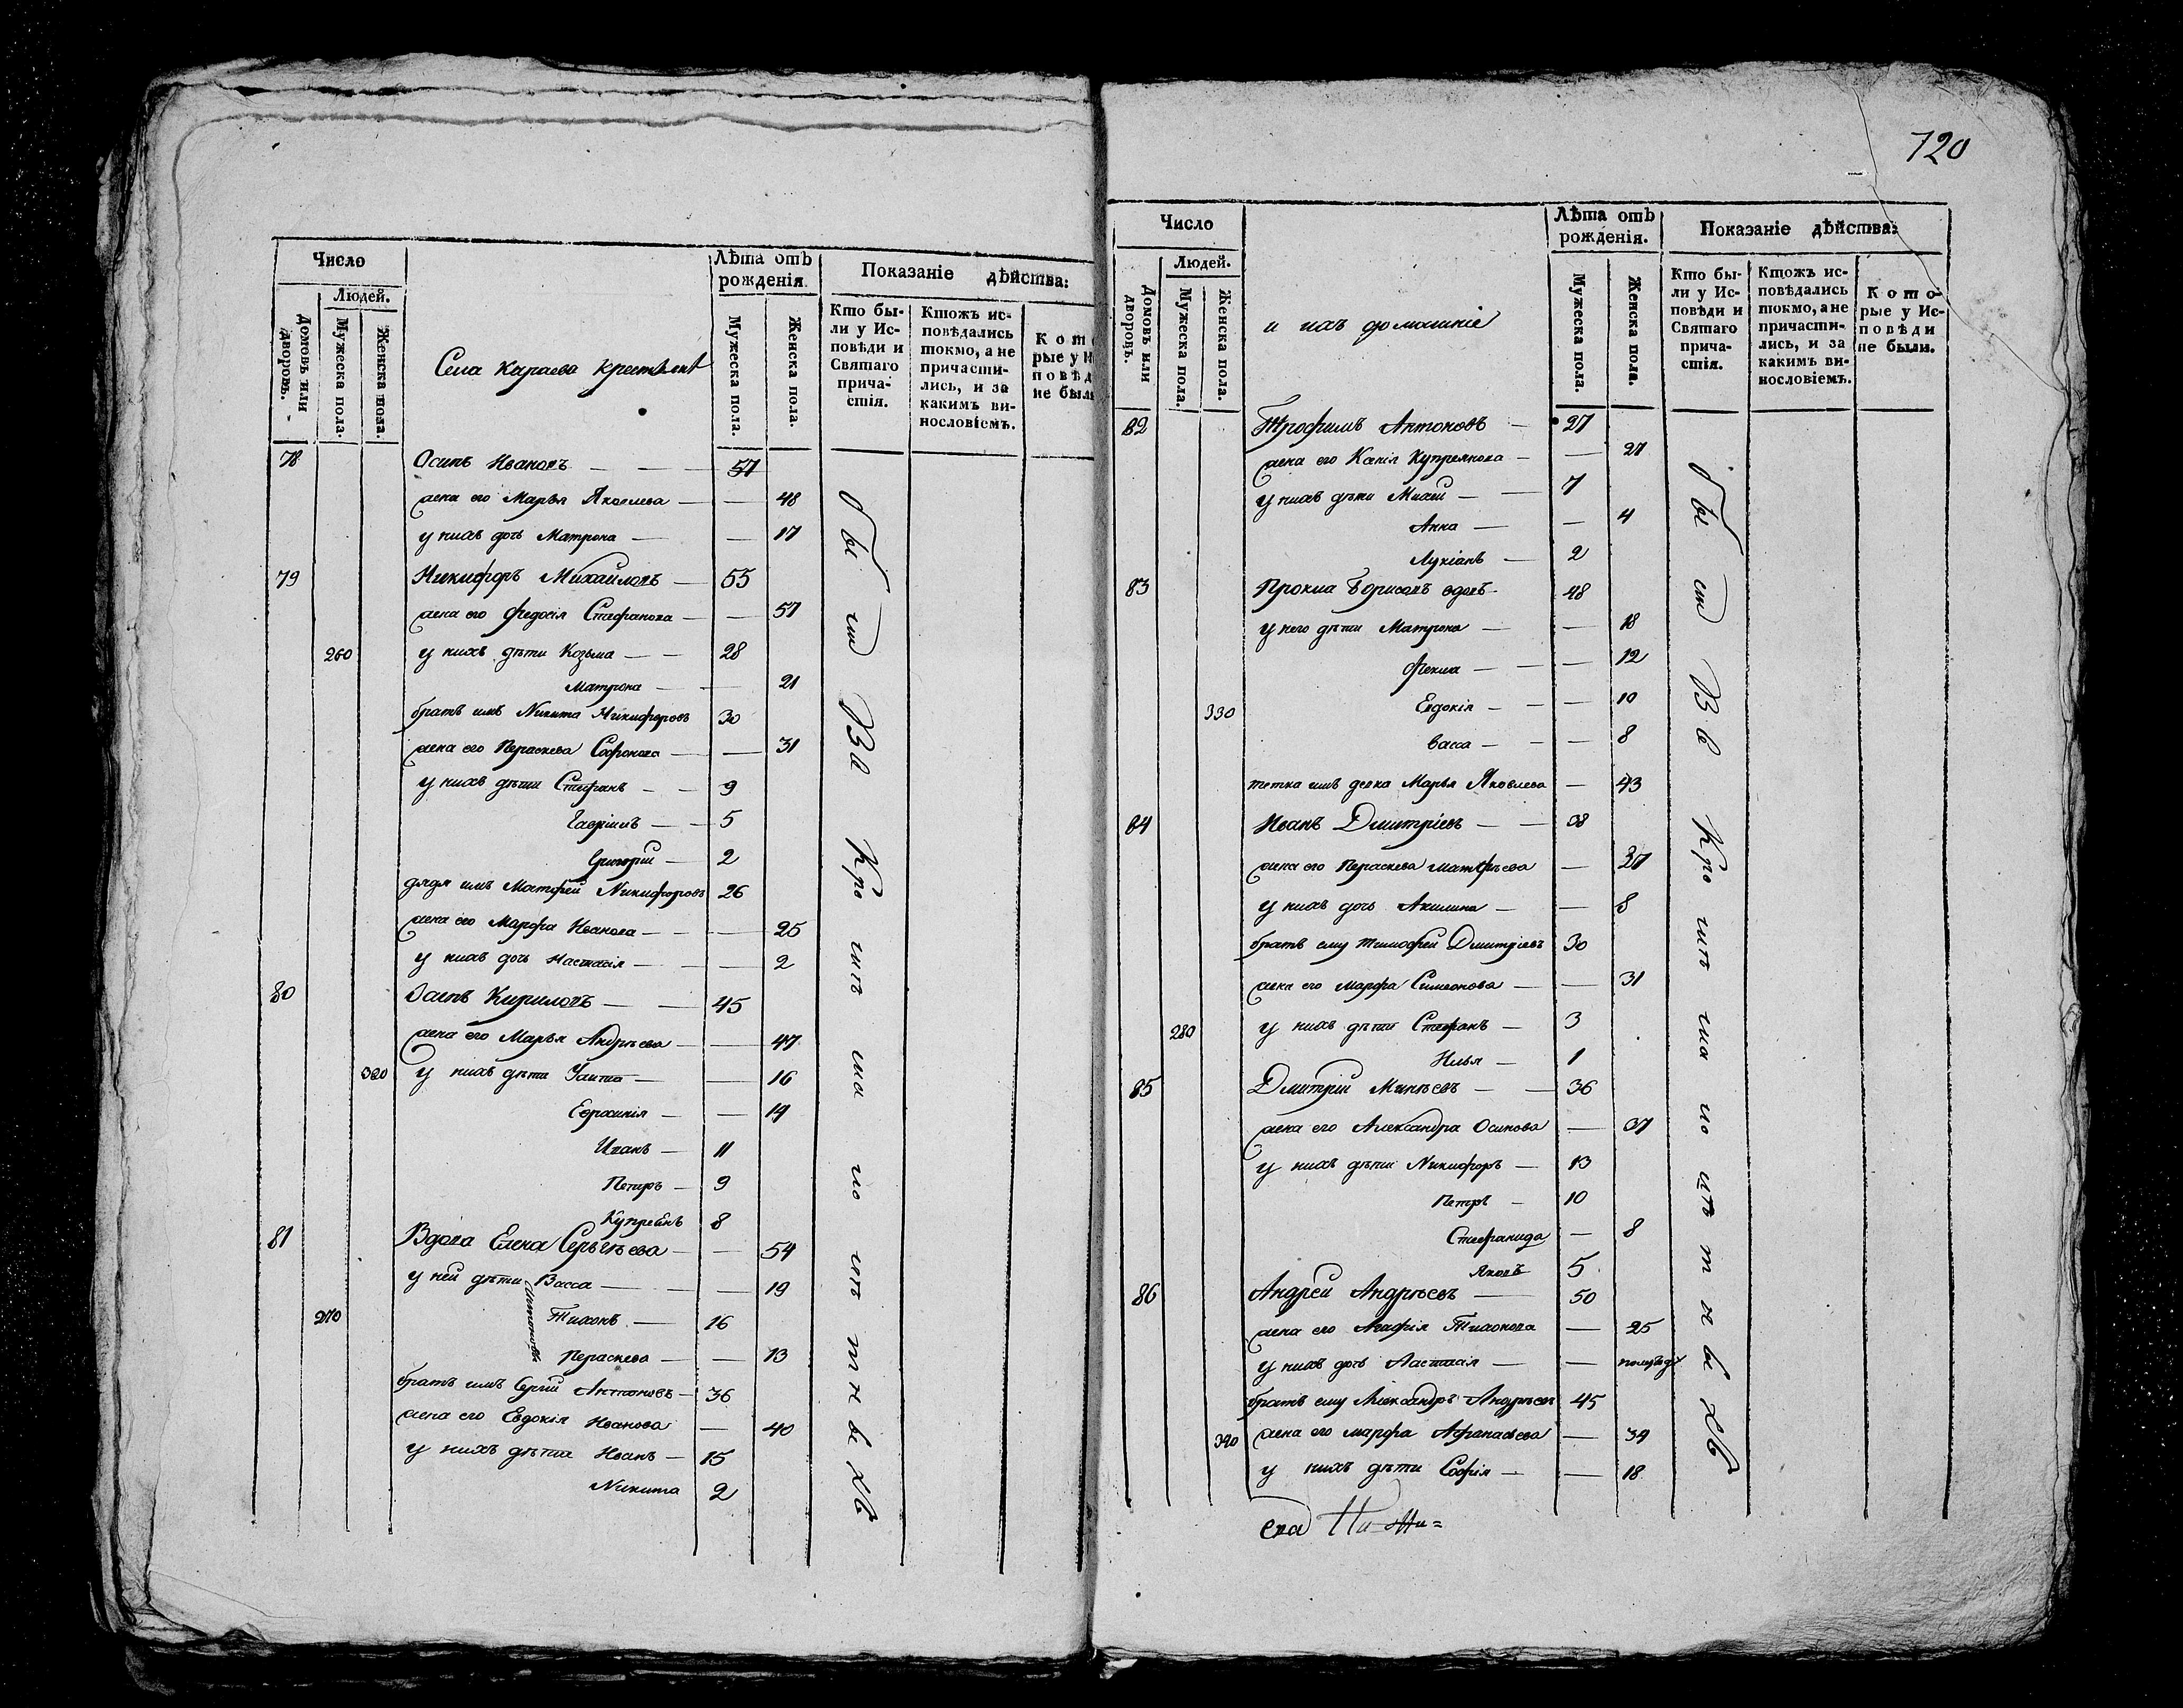 Число
Людей.
Домовъ или дворовъ.
Мужеска пола.
Женска пола.
Села Караева крестьянѣ
Лѣта отъ рожденія.
Мужеска пола.
Женска пола.
Показаніе дѣйства:
Кто были у Исповѣди и Святаго причастія.
Ктожъ исповѣдались токмо, а не причастились, и за какимъ винословіемъ.
78 Осипъ Ивановъ 57
жена его Марья Яковлева 48
у нихъ дочь Матрона 17
79 Никифоръ Михайловъ 55
жена его Федосія Стефанова 57
260 у нихъ дѣти Козьма 28
Матрона 21
братъ имъ Никита Никифоровъ 30
жена его Пераскева Софонова 31
у нихъ дѣти Стефанъ 9
Гавріилъ 5
Григорій 2
дядя имъ Матфей Никифоровъ 26
жена его Марфа Иванова 25
у нихъ дочь Настасія 2
80 Осипъ Кириловъ 45
жена его Марья Андрѣева 47
320 у нихъ дѣти Улита 16
Евфросинія 14
Иванъ 11
Петръ 9
Купреянъ 8
81 Вдова Елена Сергѣева 54
у ней дѣти Васса 19
Антоновы
270 Тихонъ 16
Пераскева 13
братъ имъ Сергій Антоновъ 36
жена его Евдокія Иванова 40
у нихъ дѣти Иванъ 15
Никита 2
бы ли Всѣ
720
Число
Людей.
Домовъ или дворовъ.
Мужеска пола.
Женска пола.
и ихъ домашніе
Лѣта отъ рожденія.
Мужеска пола.
Женска пола.
Показаніе дѣйства:
Кто были у Исповѣди и Святаго причастія.
Ктожъ исповѣдались токмо, а не причастились, и за какимъ винословіемъ.
Которые у Исповѣди не были.
82 Трофимъ Антоновъ 27
жена его Купреянова 27
у нихъ дѣти 7
Анна 4
Лукіанъ 2
83 Борисовъ вдовъ 48
у него дѣти Матрона 18
Фекла 12
330 Евдокія 10
Васса 8
тетка имъ девка Марья Яковлева 43
84 Иванъ Дмитріевъ 38
жена его Пераскева Матфѣева 37
у нихъ дочь Акилина 8
братъ ему Тимофей Дмитріевъ 30
жена его Марфа Симеонова 31
280 у нихъ дѣти Стефанъ 3
Илья 1
85 Дмитрій Минѣевъ 36
жена его Александра Осипова 37
у нихъ дѣти Никифоръ 13
Петръ 10
Стефанида 8
Яковъ 5
86 Андрей Андрѣевъ 50
жена его Агафія Тихонова 25
у нихъ дочь Настасія полугод
братъ ему Александръ Андрѣевъ 45
340 жена его Марфа Афанасьева 34
у нихъ дѣти Софія 18